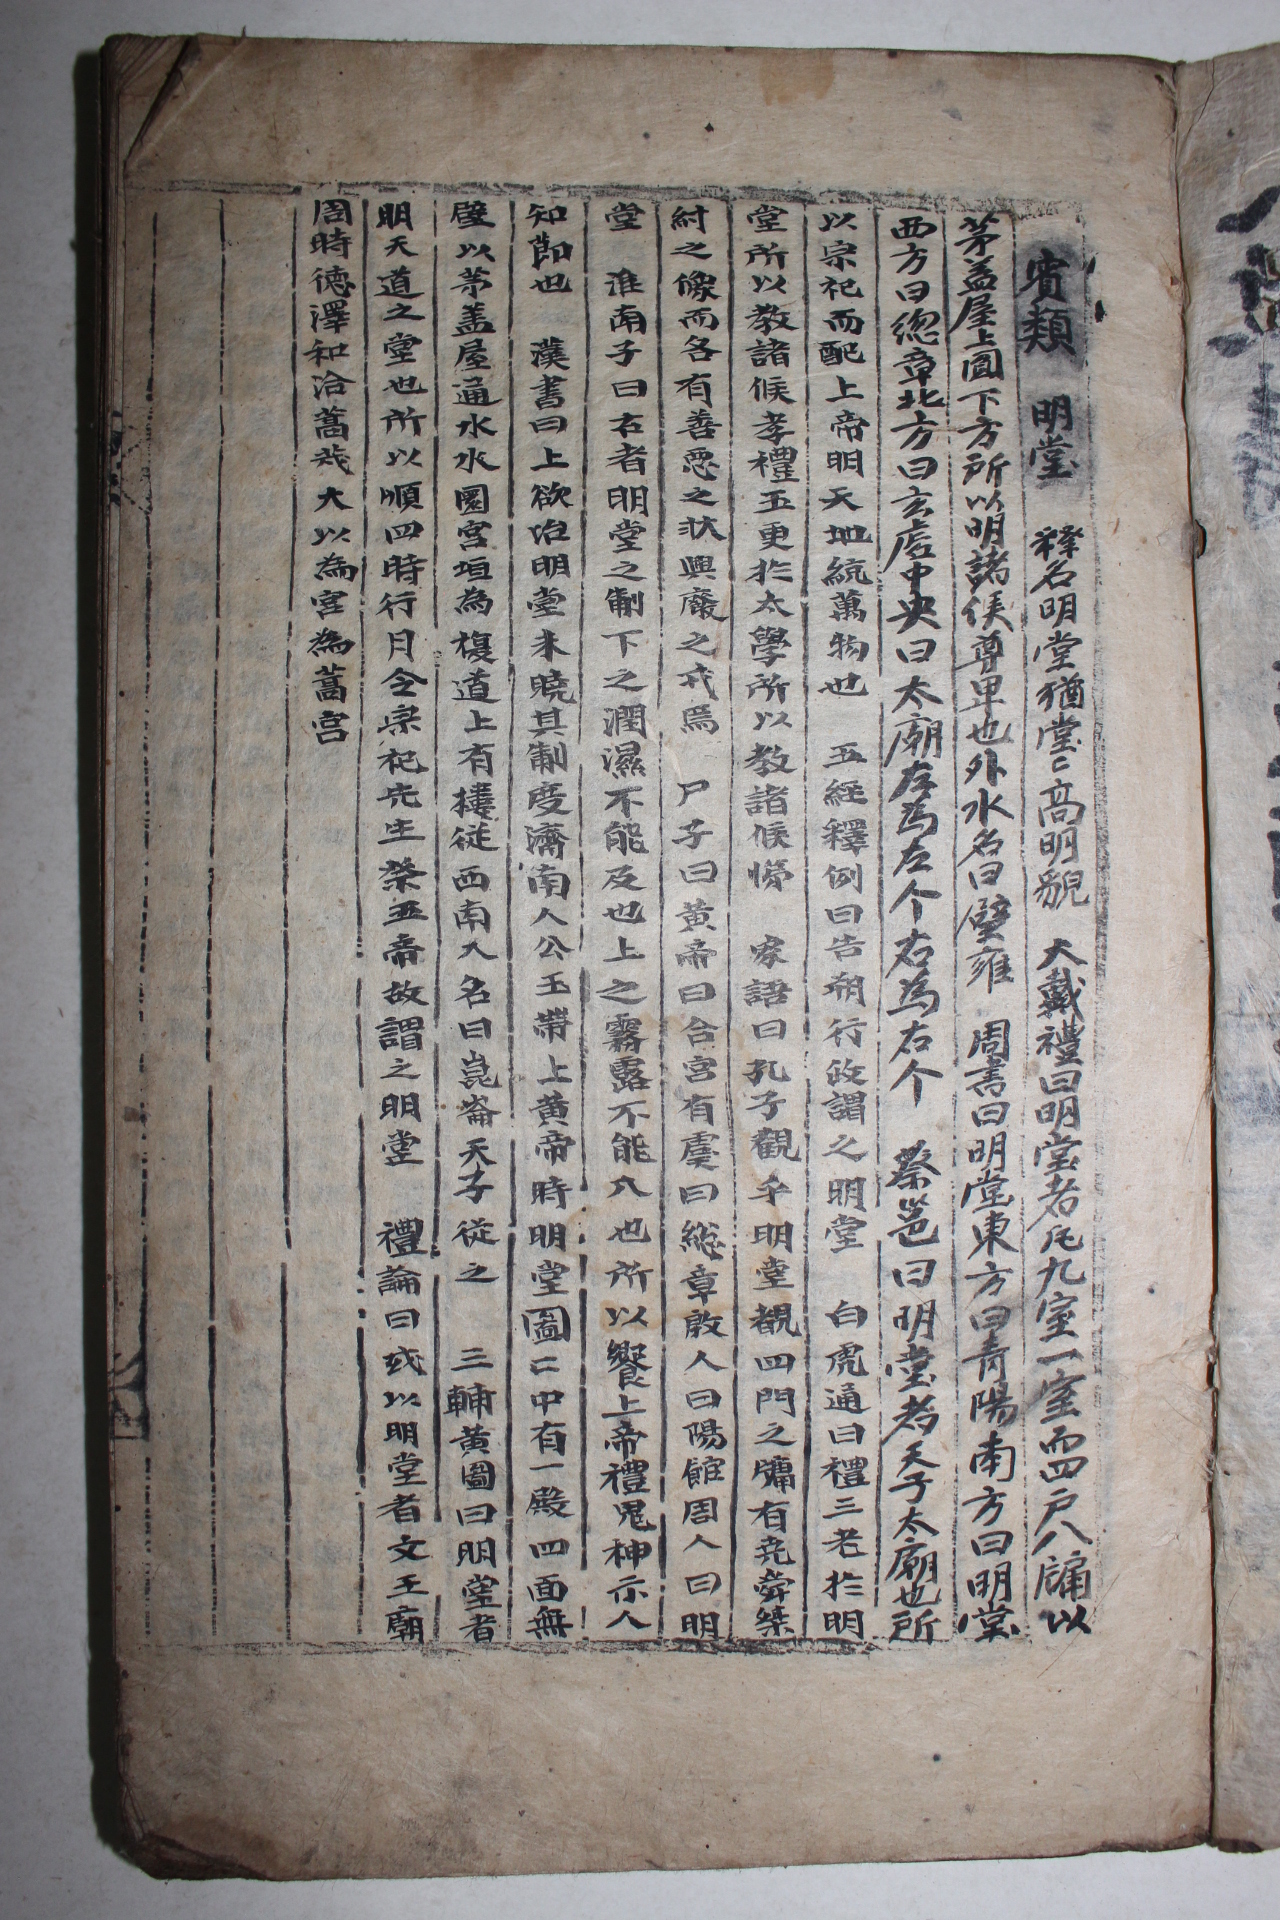 賓類 明堂 釋名明堂猶堂〻高明貌 大戴禮曰明堂者凡九室一室而四戶八牖以
茅盖屋上圓下方所以明諸侯尊卑也外水名曰辟雍 周書曰明堂東方曰青陽南方曰明堂
西方曰總章北方曰玄虛中央曰太廟左爲左个右爲右个 蔡邕曰明堂者天子太廟也所
以宗祀而配上帝明天地統萬物也 五經釋例曰告朔行政謂之明堂 白虎通曰禮三老於明
堂所以教諸侯孝禮五更於太學所以教諸侯悌 家語曰孔子觀乎明堂覩四門之牖有堯舜桀
紂之像而各有善惡之狀興廢之戒焉 尸子曰黃帝曰合宮有虞曰總章殷人曰陽館周人曰明
堂 淮南子曰古者明堂之制下之潤濕不能及也上之霧露不能入也所以饗上帝禮鬼神示人
知節也 漢書曰上欲治明堂未曉其制度濟南人公玉帶上黃帝時明堂圖〻中有一殿四面無
壁以茅盖屋通水水圜宮垣爲複道上有樓從西南入名曰崑崙天子從之 三輔黃圖曰明堂者
明天道之堂也所以順四時行月令宗祀先生祭五帝故謂之明堂 禮論曰或以明堂者文王廟
周時德澤和洽蒿茂大以為宮為蒿宮